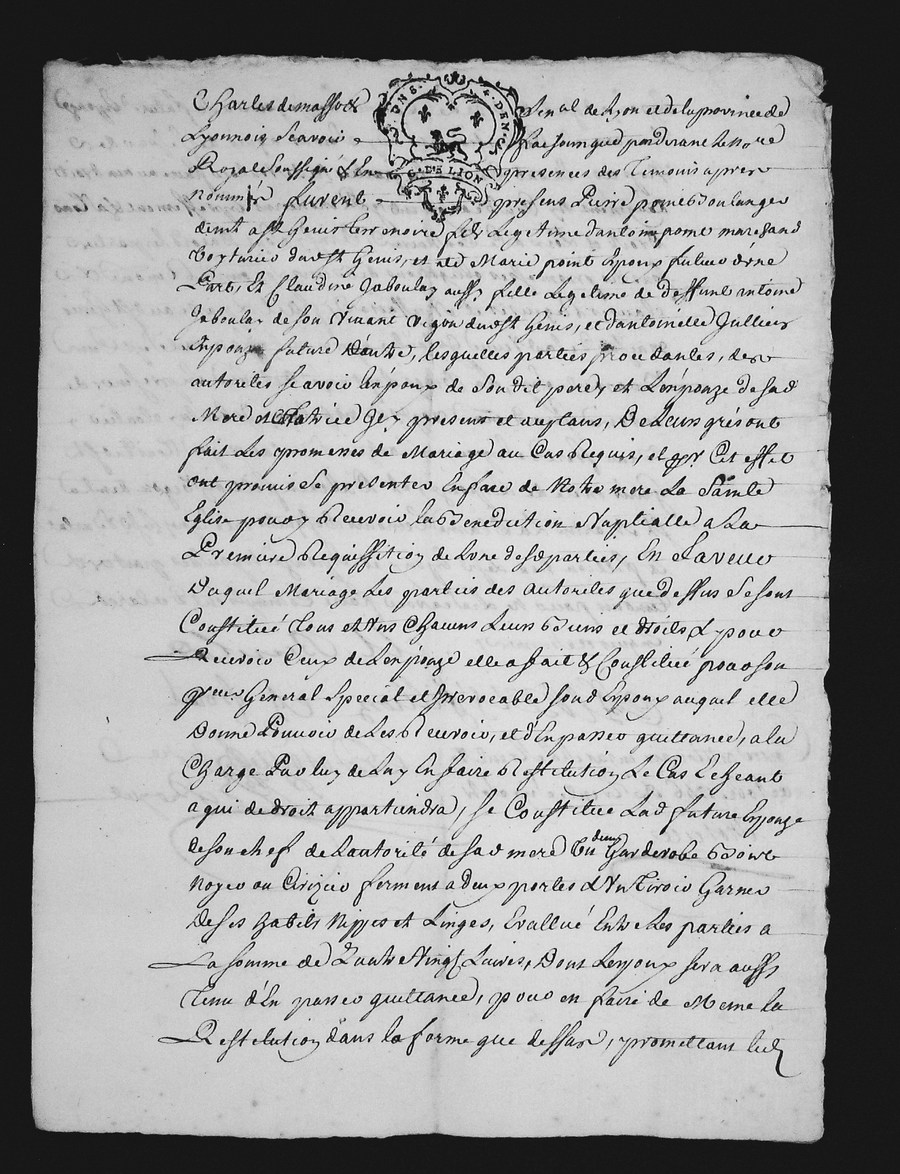 Charles de masso Senal de Lyon et de la province de
Lyonnois Scavoir faisons que pardevant le Nore
Royal Soussigné & En presences des Temoins apres
Nommés furent presens Pierre pome Boulanger
demt a st Genis terrenoire fils Legetime dantoine pome marchand
voyturier dudt st Genis, et de Marie point Epoux futur dune
Part, Et Claudine Jaboulay aussy fille Legetime de deffunt antoine
Jaboulay de son vivant vigon dudt st Genis, et dantoinette Jullien
Enpouze future Dautre, lesquelles parties procedantes, des
autorites scavoir lenpoux de Son dit pere, et Lenpouze de sad
Mere et tutrice Icy presens et auptans, De Leurs grés ont
fait Les promesses de Mariage au Cas Requis, et pr Cet effet
ont promis Se presenter En face de Notre mere La Sainte
Eglise pour y Recevoir la Benediction Nuptialle a La
Premiere Requissition de Lune desdparties, En faveur
Duquel Mariage Les parties des autorites que dessus Se sont
Constitué Tous et uns Chacuns Leurs Biens et droits & pour
Recevoir Ceux de Lenpouze elle a fait & Constitué pour son
General Special et Irrevocable sond Epoux auquel elle
Donne Pouvoir de Les Recevoir, et d'En passer quittance, a la
Charge Par luy de Luy En faire Restitution Le Cas Echeant
a qui de droit appartiendra, se Constitue Lad future Epouze
de son chef de Lautorité de sad mere Un Garderobe Bois
deux
Noyer ou Cirizier fermens a Deux portes & Un Tiroir Garner
De ses habits Nippes et Linges, Evallué Entre Les parties a
La somme de Quatre Vingt Livres, Dont Lepoux sera aussy
Tenu d'En passer quittance, pour en faire de Meme la
Restitution dans la forme que dessus, promettant led
G. DE LION